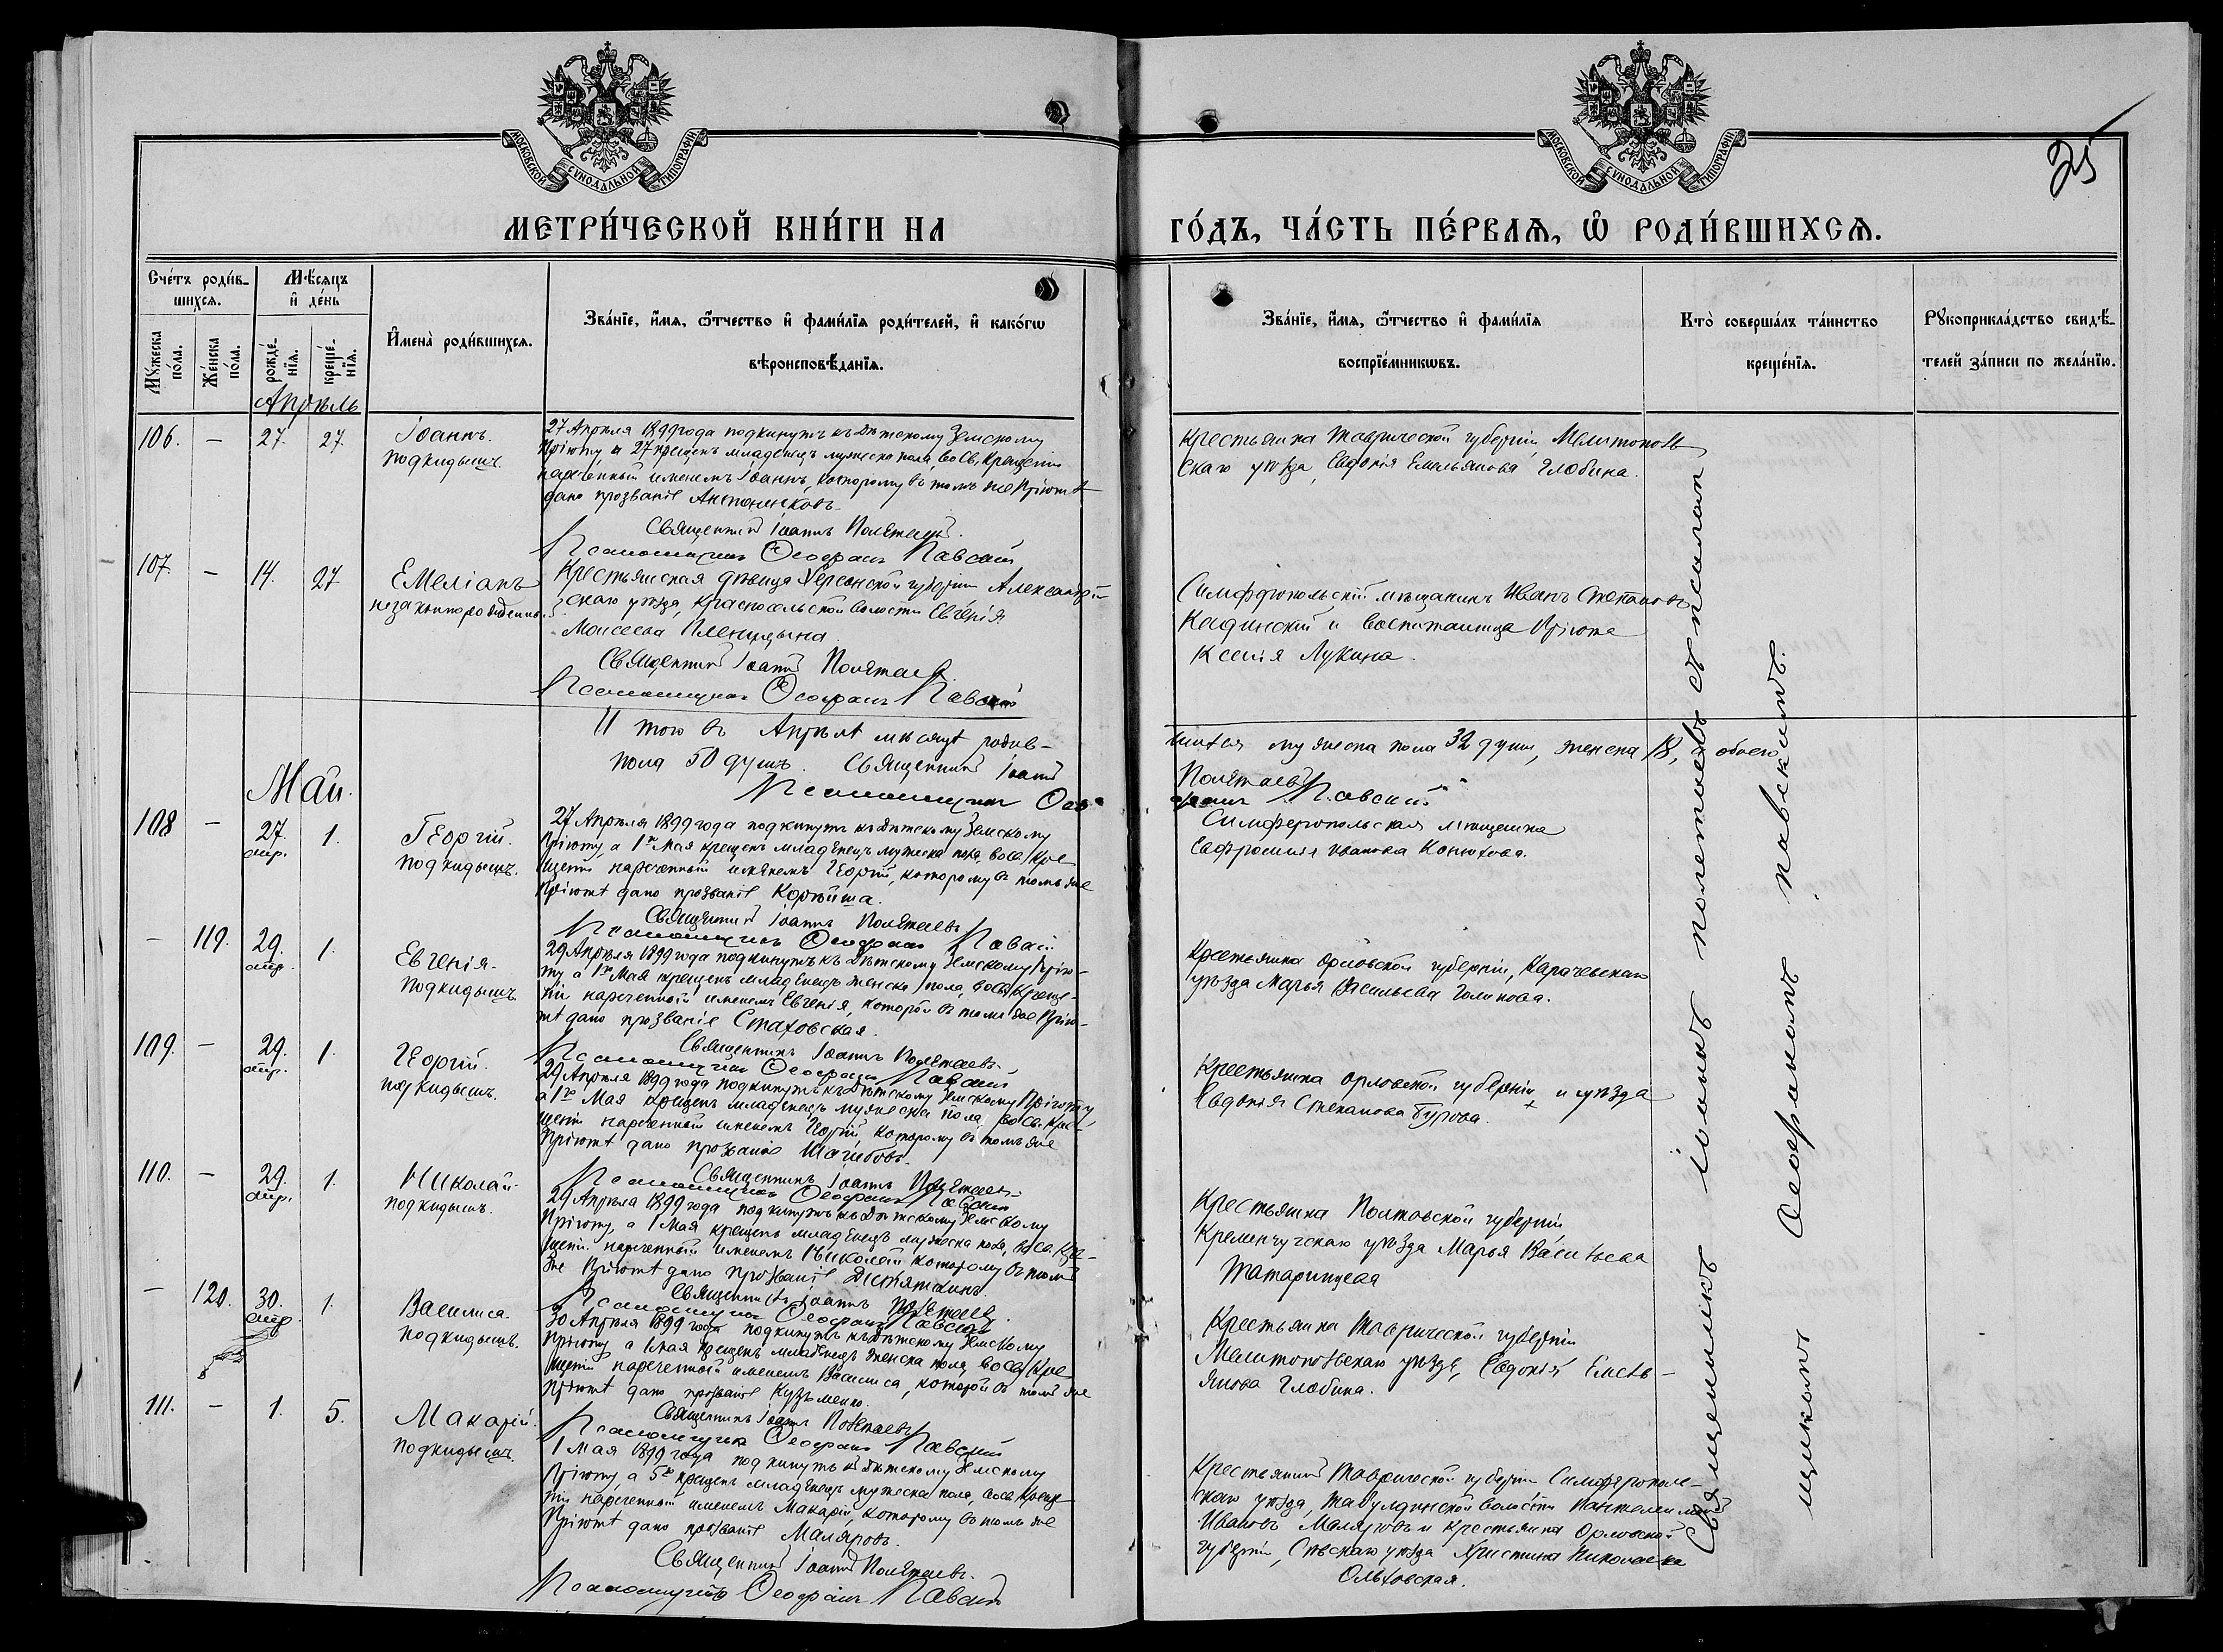 МОСКОВСКОЙ СѴНОДАЛЬНОЙ ТИПОГРАФІИ
МОСКОВСКОЙ СѴНОДАЛЬНОЙ ТИПОГРАФІИ
25
МЕТРИ́ЧЕСКОЙ КНИ́ГИ НА ГО́ДЪ, ЧА́СТЬ ПЕ́РВАѦ, Ѽ РОДИ́ВШИХСѦ.
Сче́тъ роди́в-
шихсѧ.
Мꙋ́жеска по́ла.
Же́нска по́ла.
Мѣ́сѧцъ и де́нь
рожде́-
нїѧ.
креще́-
нїѧ.
Имена̀ роди́вшихсѧ.
Зва́нїе, и́мѧ, ѻ҆́тчество и҆ фами́лїѧ роди́телей, и҆ како́гѡ
вѣроисповѣ́данїѧ.
Зва́нїе, и́мѧ, ѻ҆́тчество и҆ фами́лїѧ
воспрїе́мникѡвъ.
Кто̀ соверша́лъ та́инство
креще́нїѧ.
Рꙋкоприкла́дство свидѣ́-
телей за́писи по жела́нїю.
Апрѣль
106. — 27. 27. Іоаннъ.
подкидышъ.
27 Апрѣля 1899 года подкинутъ къ Дѣтскому Земскому
Пріюту а 27 крещенъ младенецъ мужеска пола, во Св. Крещеніи
нареченный именемъ Іоаннъ, которому въ томъ же Пріютѣ
дано прозваніе
Священникъ Іоаннъ Полетаевъ.
Псаломщикъ Ѳеофанъ Павскій
Крестьянка Таврической губерніи, Мелитополь
скаго уѣзда, Евдокія Емельянова Глобина.
107. — 14. 27 Емеліанъ
незаконнорожденный.
Крестьянская дѣвица Херсонской губерніи Александрій
скаго уѣзда, Красносельской волости Евгенія
Моисеева
Священникъ Іоаннъ Полетаевъ.
Псаломщикъ Ѳеофанъ Павскій
Симферопольскій мѣщанинъ Иванъ Степановъ
и воспитанница Пріюта
Ксенія Лукина.
Итого въ Апрѣлѣ мѣсяцѣ родив-
шихся мужеска пола 32 души, женска 18, обоего
пола 50 душъ. Священникъ Іоаннъ
Полетаевъ
Псаломщикъ Ѳео-
фанъ Павскій
Май.
108 — 27. апр. 1. Георгій.
подкидышъ.
27 Апрѣля 1899 года подкинутъ къ Дѣтскому Земскому
Пріюту, а 1го Мая крещенъ младенецъ мужеска пола, во Св. Кре
щеніи нареченный именемъ Георгій, которому въ томъ же
Пріютѣ дано прозваніе
Священникъ Іоаннъ Полетаевъ
Псаломщикъ Ѳеофанъ Павскій
Симферопольская мѣщанка
Евфросинія Иванова Конюхова.
— 119. 29. апр. 1. Евгенія.
подкидышъ.
29 Апрѣля 1899 года подкинутъ къ Дѣтскому Земскому Прію-
ту а 1го Мая крещенъ младенецъ женска пола, во Св. Креще-
ніи нареченной именемъ Евгенія, которой въ томъ же Прію-
тѣ дано прозваніе Стаховская.
Священникъ Іоаннъ Полетаевъ.
Псаломщикъ Ѳеофанъ Павскій
Крестьянка Орловской губерніи, Карачевскаго
уѣзда Марья Васильева Голикова.
109. — 29. апр. 1. Георгій.
подкидышъ.
29 Апрѣля 1899 года подкинутъ къ Дѣтскому Земскому Пріюту,
а 1го Мая крещенъ младенецъ мужеска пола, во Св. Кре-
щеніи нареченный именемъ Георгій, которому въ томъ же
Пріютѣ дано прозваніе
Священникъ Іоаннъ Полетаевъ.
Псаломщикъ Ѳеофанъ Павскій
Крестьянка Орловской губерніи и уѣзда
Евдокія Степанова Бурова.
110. — 29. апр. 1. Николай.
подкидышъ.
29 Апрѣля 1899 года подкинутъ къ Дѣтскому Земскому
Пріюту, а 1 Мая крещенъ младенецъ мужеска пола, во Св. Кре-
щеніи нареченный именемъ Николай которому въ томъ
же Пріютѣ дано прозваніе
Священникъ Іоаннъ Полетаевъ.
Псаломщикъ Ѳеофанъ Павскій
Крестьянка Полтавской губерніи
Кременчугскаго уѣзда Марья Васильева
Татаринцева
— 120. 30. апр. 1. Василиса.
подкидышъ.
30 Апрѣля 1899 года подкинутъ къ Дѣтскому Земскому
Пріюту, а 1 Мая крещенъ младенецъ женска пола, во Св. Кре-
щеніи нареченной именемъ Василиса, которой въ томъ же
Пріютѣ дано прозваніе Кузьменко.
Священникъ Іоаннъ Полетаевъ
Псаломщикъ Ѳеофанъ Павскій
Крестьянка Таврической губерніи
Мелитопольскаго уѣзда, Евдокія Емель-
янова Глобина.
111. — 1. 5. Макарій.
подкидышъ.
1 Мая 1899 года подкинутъ къ Дѣтскому Земскому
Пріюту, а 5го крещенъ младенецъ мужеска пола, во Св. Креще-
ніи нареченный именемъ Макарій, которому въ томъ же
Пріютѣ дано прозваніе Маляровъ.
Священникъ Іоаннъ Полетаевъ.
Псаломщикъ Ѳеофанъ Павскій
Крестьянинъ Таврической губерніи Симферополь-
скаго уѣзда, Табулдинской волости Пантелеимонъ
Ивановъ Маляровъ и крестьянка Орловской
губерніи, Сѣвскаго уѣзда Христина Николаева
Ольховская.
Священникъ Іоаннъ Полетаевъ съ псалом
щикомъ Ѳеофаномъ Павскимъ.